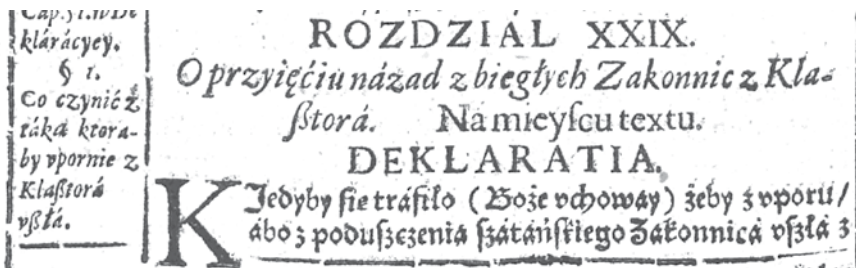 Cap. 31. w De
kláracyey.
§ 1.
Co czynić z
táką ktora-
by vpornie z
Klaßtorá
vßłá.
ROZDZIAL XXIX.
O przyięćiu názad z biegłych Zakonnic z Kla-
ßtorá. Na mieyſcu textu.
DEKLARATIA.
KJedyby ſie tráfiło (Boże vchoway) żeby z vporu/
ábo z poduſzczenia ſzátáńſkiego Zakonnicá vſzłá z